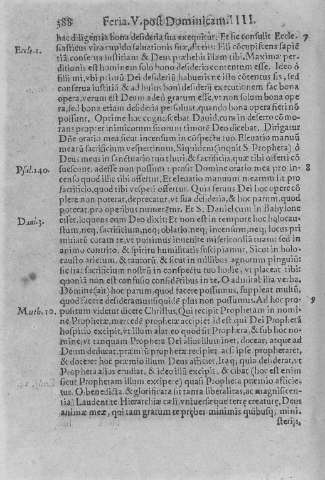 588 Feria. V. post Dominicam. IIII.
hac diligentia bona desideria sua exequitur. Et sic consulit Eccle- 7
Eccle. 1. siasticus viro cupido saluationis suæ, dicens: Fili cōcupiscens sapiē
tiā conserua iustitiam & Deus præbebit illam tibi. Maxima per-
ditionis est homini in solo bono desiderio contentum esse. Ideo ô
fili mi, vbi primū Dei desideriū habueris ne isto cōtentus sis, sed
conserua iustitiā & ad huius boni desiderij executionem fac bona
opera, verum est Deum adeò gratum esse, vt non solum bona ope
ra, sed bona etiam desideria persoluat, quando bona opera fieri nō
possunt. Optime hac cognoscebat Dauid, cum in deserto cō mo-
rans propter inimicorum suorum timore Deo dicebat. Dirigatur
Dñe oratio mea sicut incensum in cōspectu tuo. Eleuatio manuū
mearū sacrificium vespertinum. Siquidem (inquit S. Propheta) ô
Deus meus in sanctuario tuo thuri, & sacrificia, quæ tibi offerri cō
Psal. 140. sueuere, adesse non possum: præsit Domine oratio mea pro in- 8
censo quod illic tibi offertur. Et eleuatio manuum mearum sit pro
sacrificio, quod tibi vesperi offertur. Quia seruus Dei hoc opere cō
plere non poterat, deprecatur, vt sua desideria, & hoc parum, quod
poterat, pro operibus numerētur. Et S. Daniel cum in Babylone
Dani. 3. esset, loquens cum Deo dixit: Et non est in tempore hoc holocau-
stum, neq, sacrificium, neq; oblatio, neq; incensum, neq; locus pri
mitiarū coram te, vt possimus inuenire misericordiā tuam: sed in
animo contrito, & spiritu humilitatis suscipiamur. Sicut in holo-
causto arietum, & taurorū, & sicut in millibus agnorum pinguiū:
sic fiat sacrificium nostrū in conspectu tuo hodie, vt placeat tibi:
quoniā non est confusio confidētibus in te. O admirabilia verba.
Domine (ait) hoc parum quod facere possumus, suppleat multū,
quod facere desideramus: quia id plus non possumus. Ad hoc pro- 9
Matth. 10. positum videtur dicere Christus. Qui recipit Prophetam in nomi-
ne Prophetæ, mercedē prophetæ accipiet: id est qui Dei Prophetā
hospitio excipit, vt illum alat eo quod sit Propheta, & sub hoc no-
mine, vt tanquam Propheta Dei alios illuminet, doceat, atque ad
Deum deducat, præmiū prophetæ recipiet, ac si ipse prophetaret,
& doceret: hoc præmio illum Deus afficiet. Itaq; quia desiderat, vt
Propheta alios erudiat, & ideo illū excipit, & cibat (hoc est enim
sicut Prophetam illum excipere) quasi Propheta præmio afficie-
tur. O benedicta & glorificata sit tanta liberalitas, ac magnificen-
tia. Laudent te Hierarchiæ cœli, vniuersæque terræ creaturæ, Deus
animæ meæ, qui tam gratum te præbes minimis quibusq; mini-
sterijs,